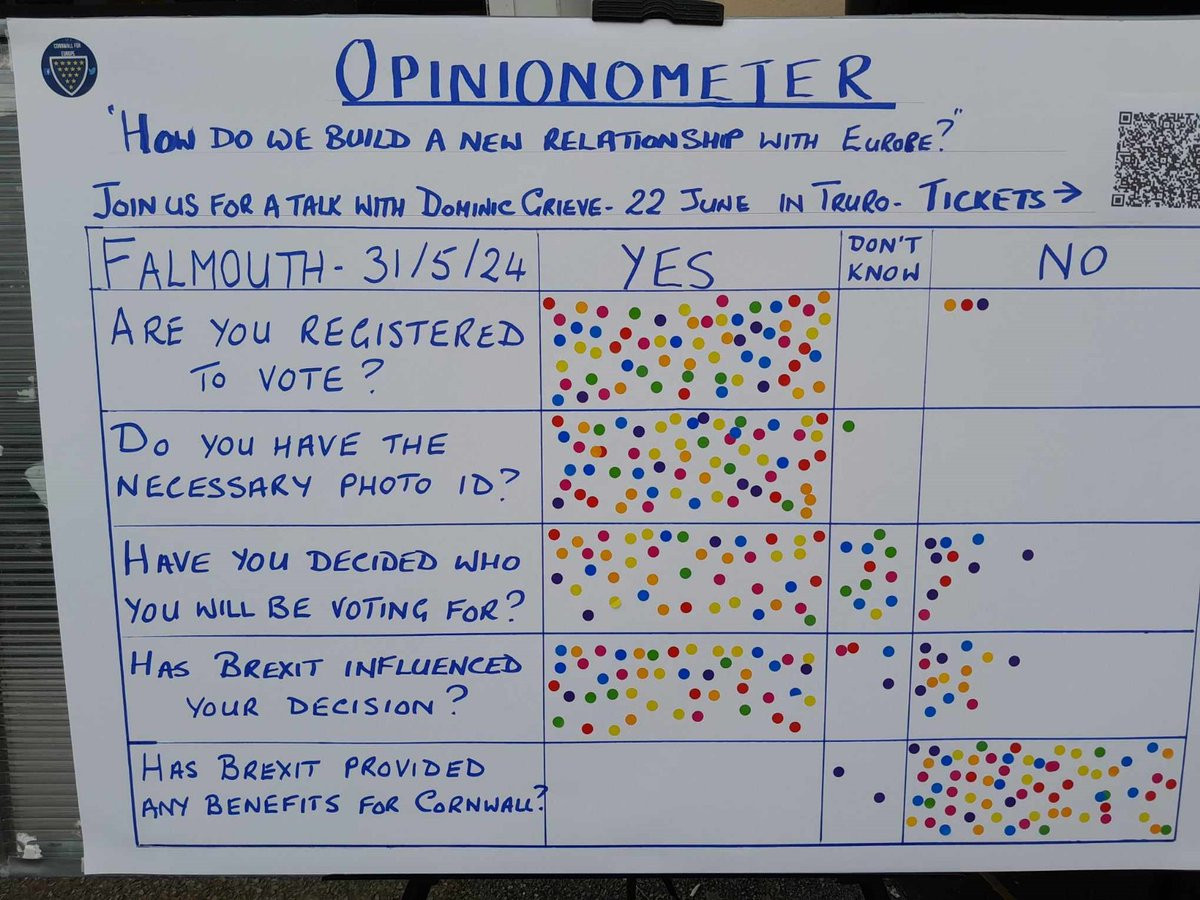 CORNWALL FOR
EUROPE
OPINIONOMETER
"HOW DO WE BUILD A NEW RELATIONSHIP WITH EUROPE?"
JOIN US FOR A TALK WITH DOMINIC GRIEVE- 22 JUNE IN TRURO- TICKETS →
FALMOUTH- 31/5/24
YES
DON'T
KNOW
NO
ARE YOU REGISTERED
TO VOTE?
DO YOU HAVE THE
NECESSARY PHOTO ID?
HAVE YOU DECIDED WHO
YOU WILL BE VOTING FOR?
HAS BREXIT INFLUENCED
YOUR DECISION?
HAS BREXIT PROVIDED
ANY BENEFITS FOR CORNWALL?